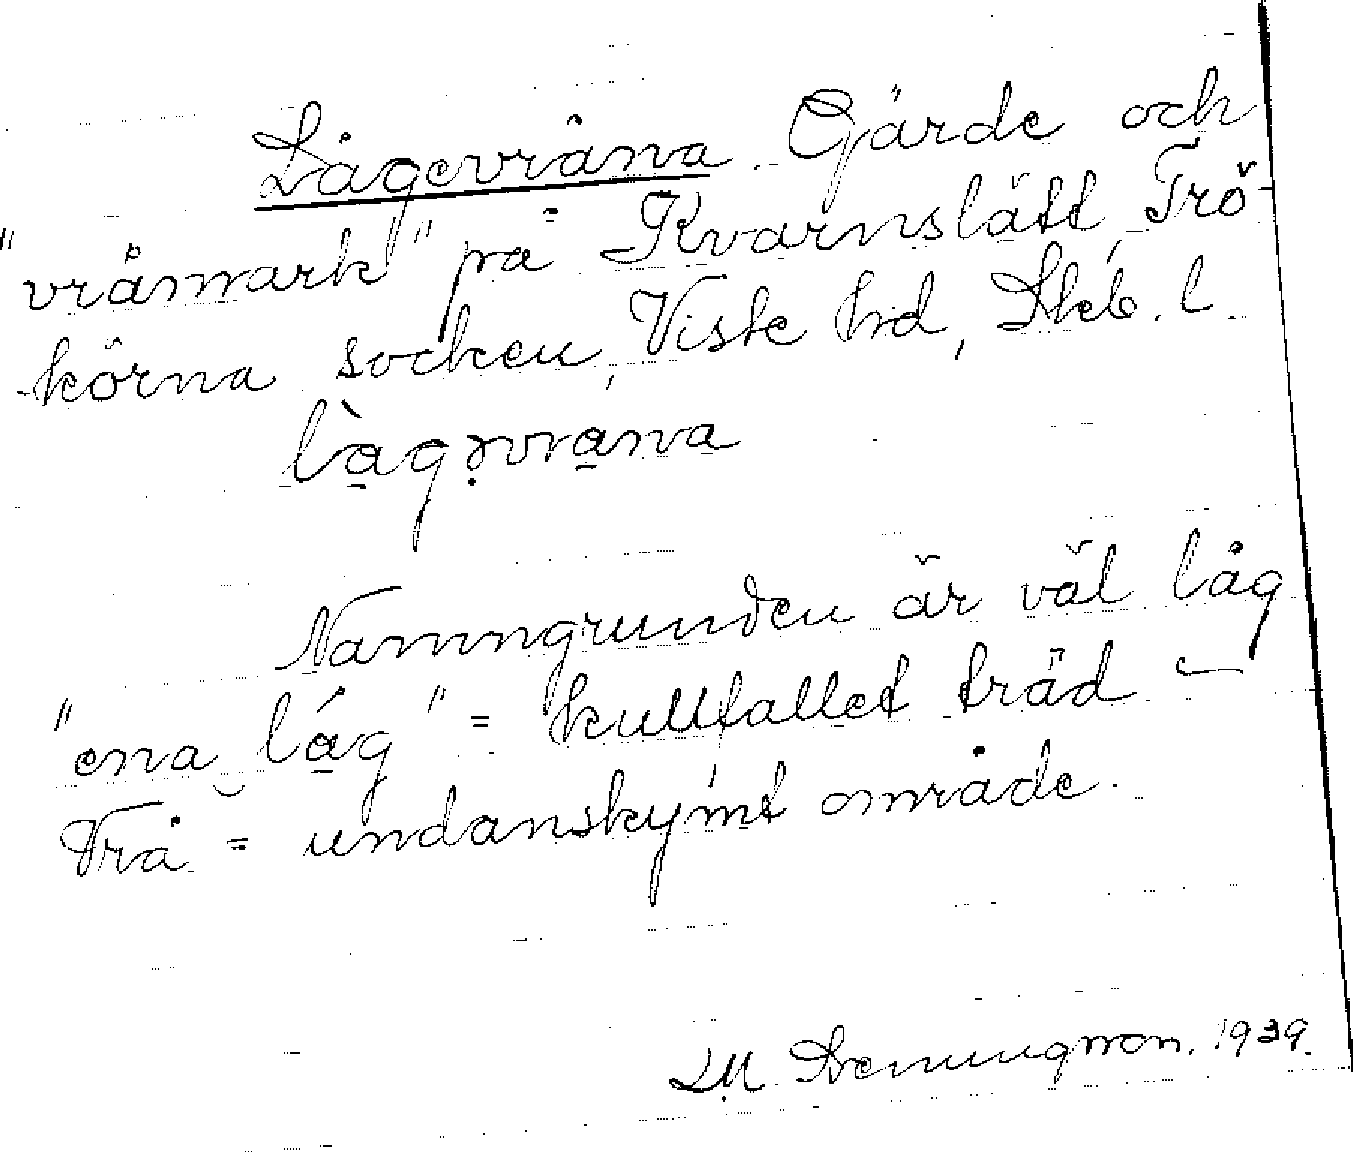 Lågevråna. Gärde och
"vråmark" på Kvarnslätt, Trö-
körna socken, Viste hd, Skb. l.
làgəvrana
Namngrunden är väl låg
"ena lág" = kullfallet träd –
Vrå = undanskymt område.
1939.